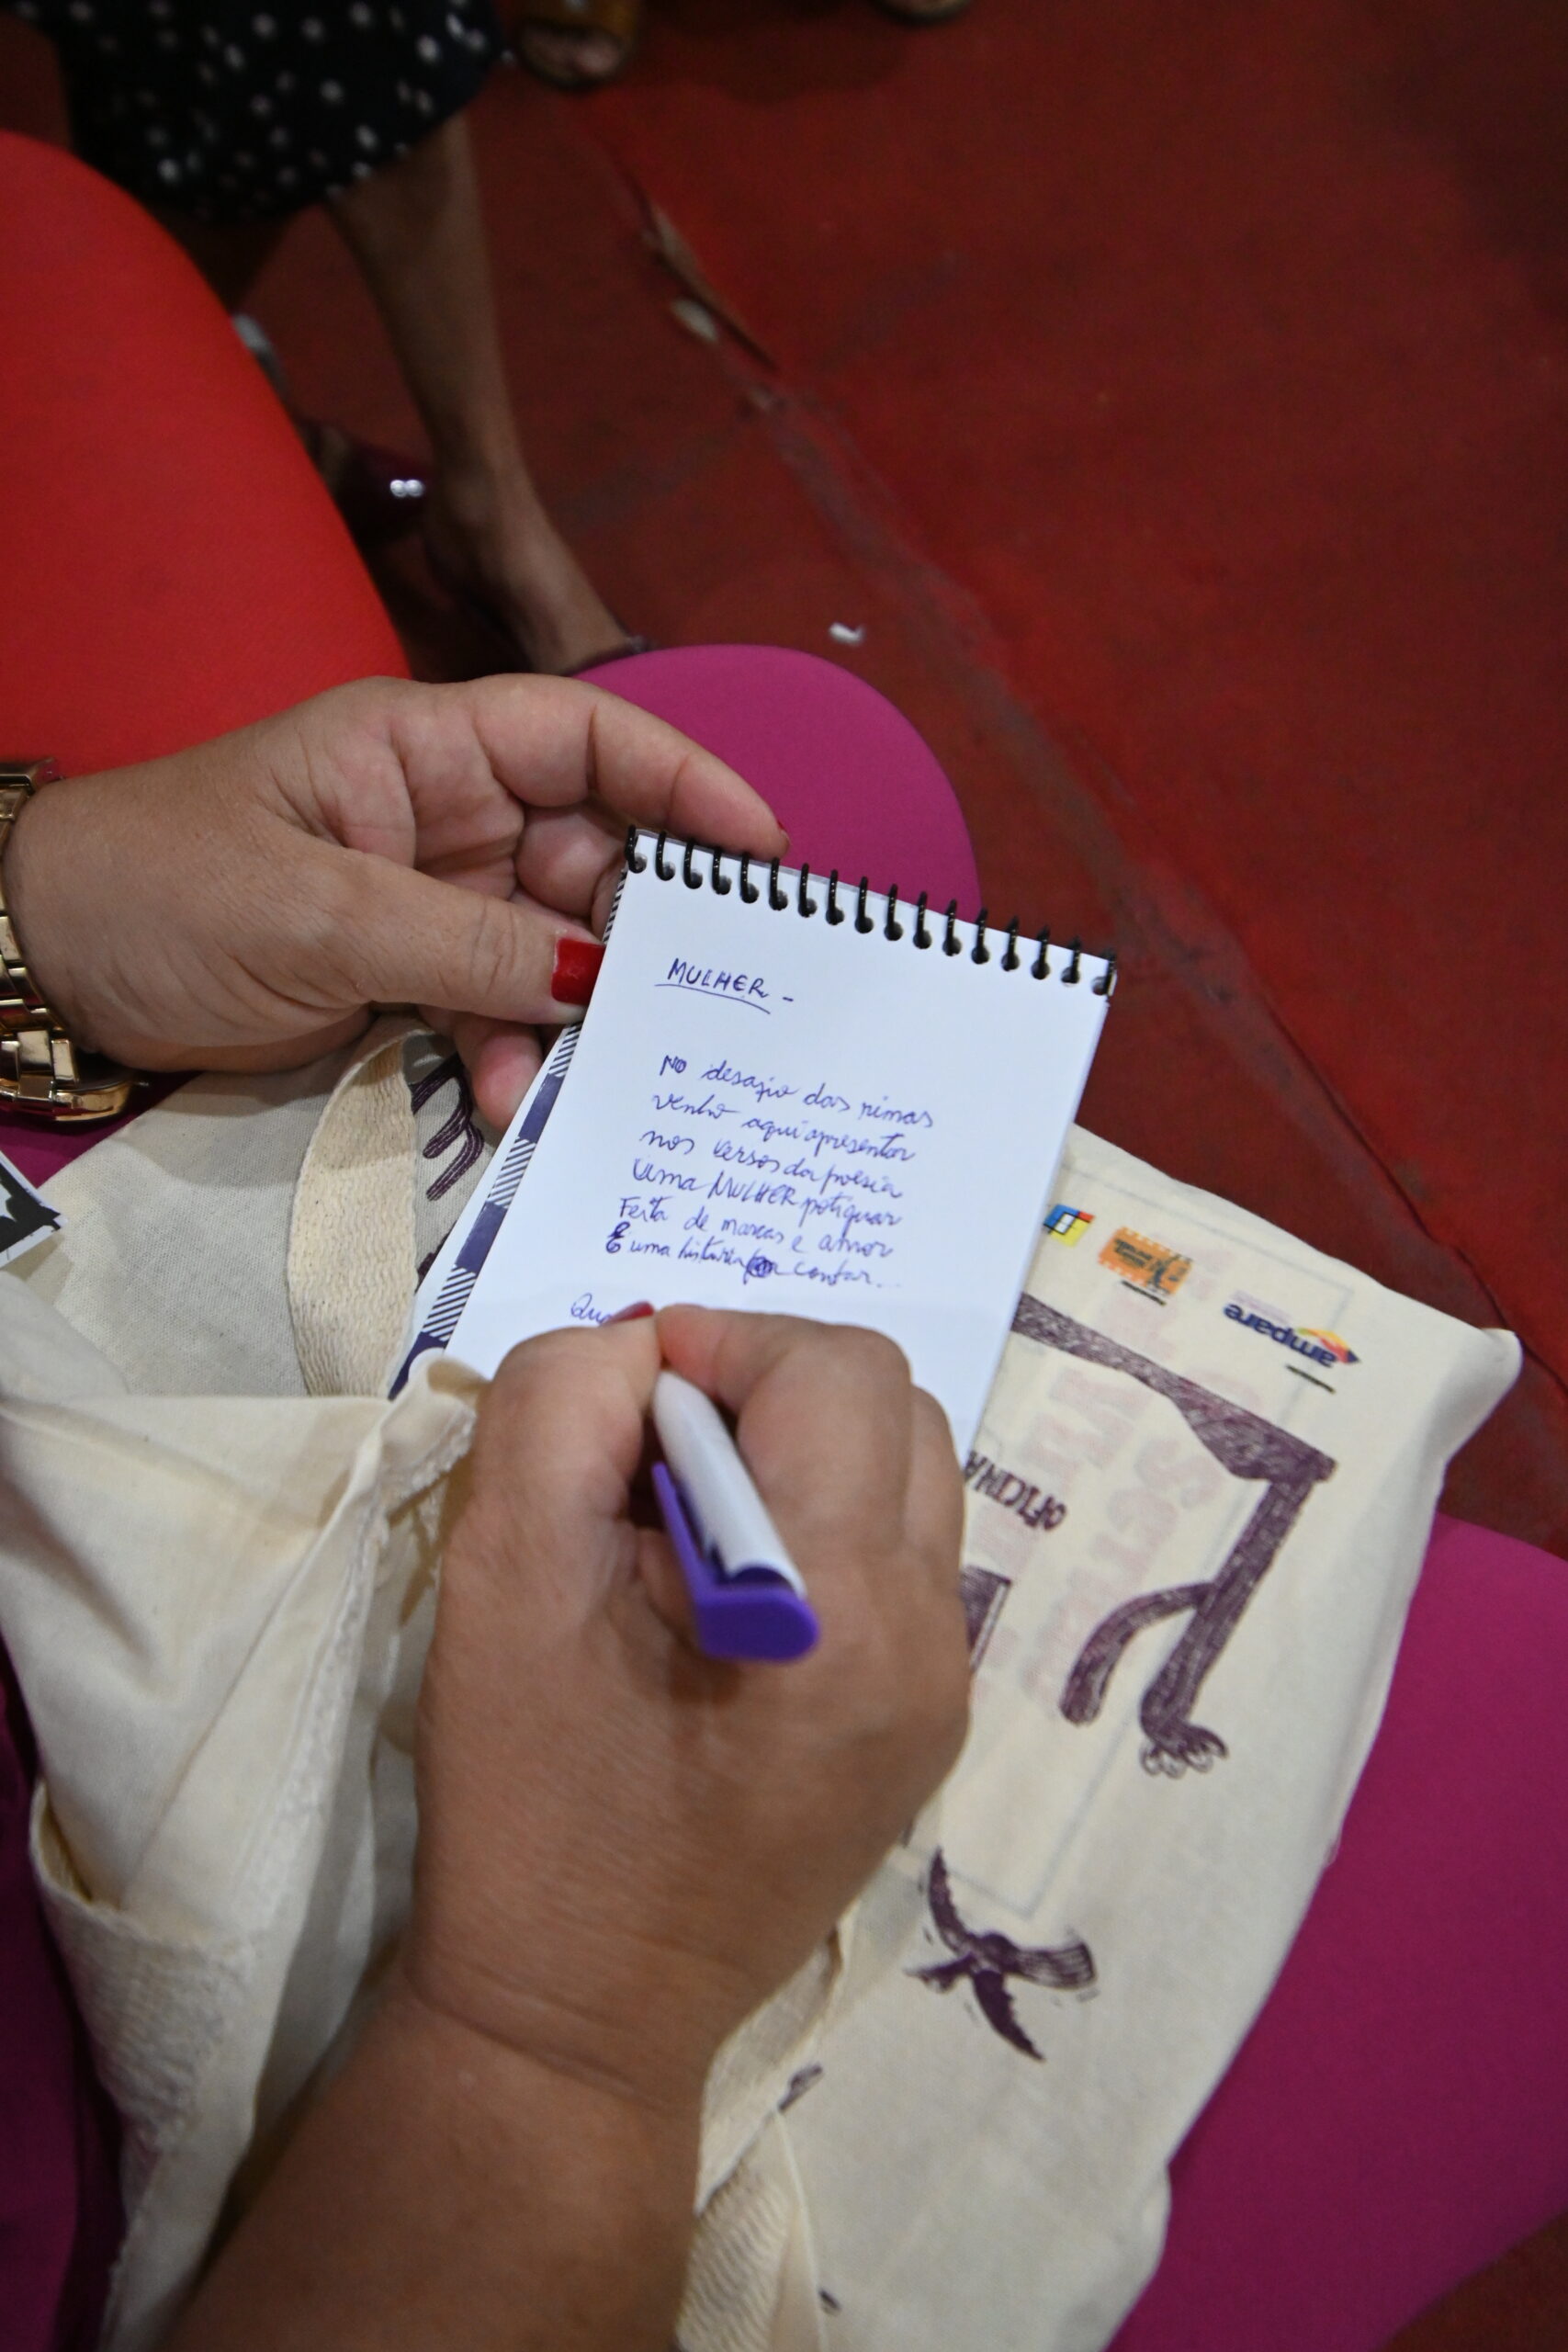 MULHER -
No desafio das rimas
venho aqui apresentar
nos versos da poesia
Uma MULHER potiguar
Feita de marcas e amor
E uma história pra contar...
Qua
ampare
OFICINA